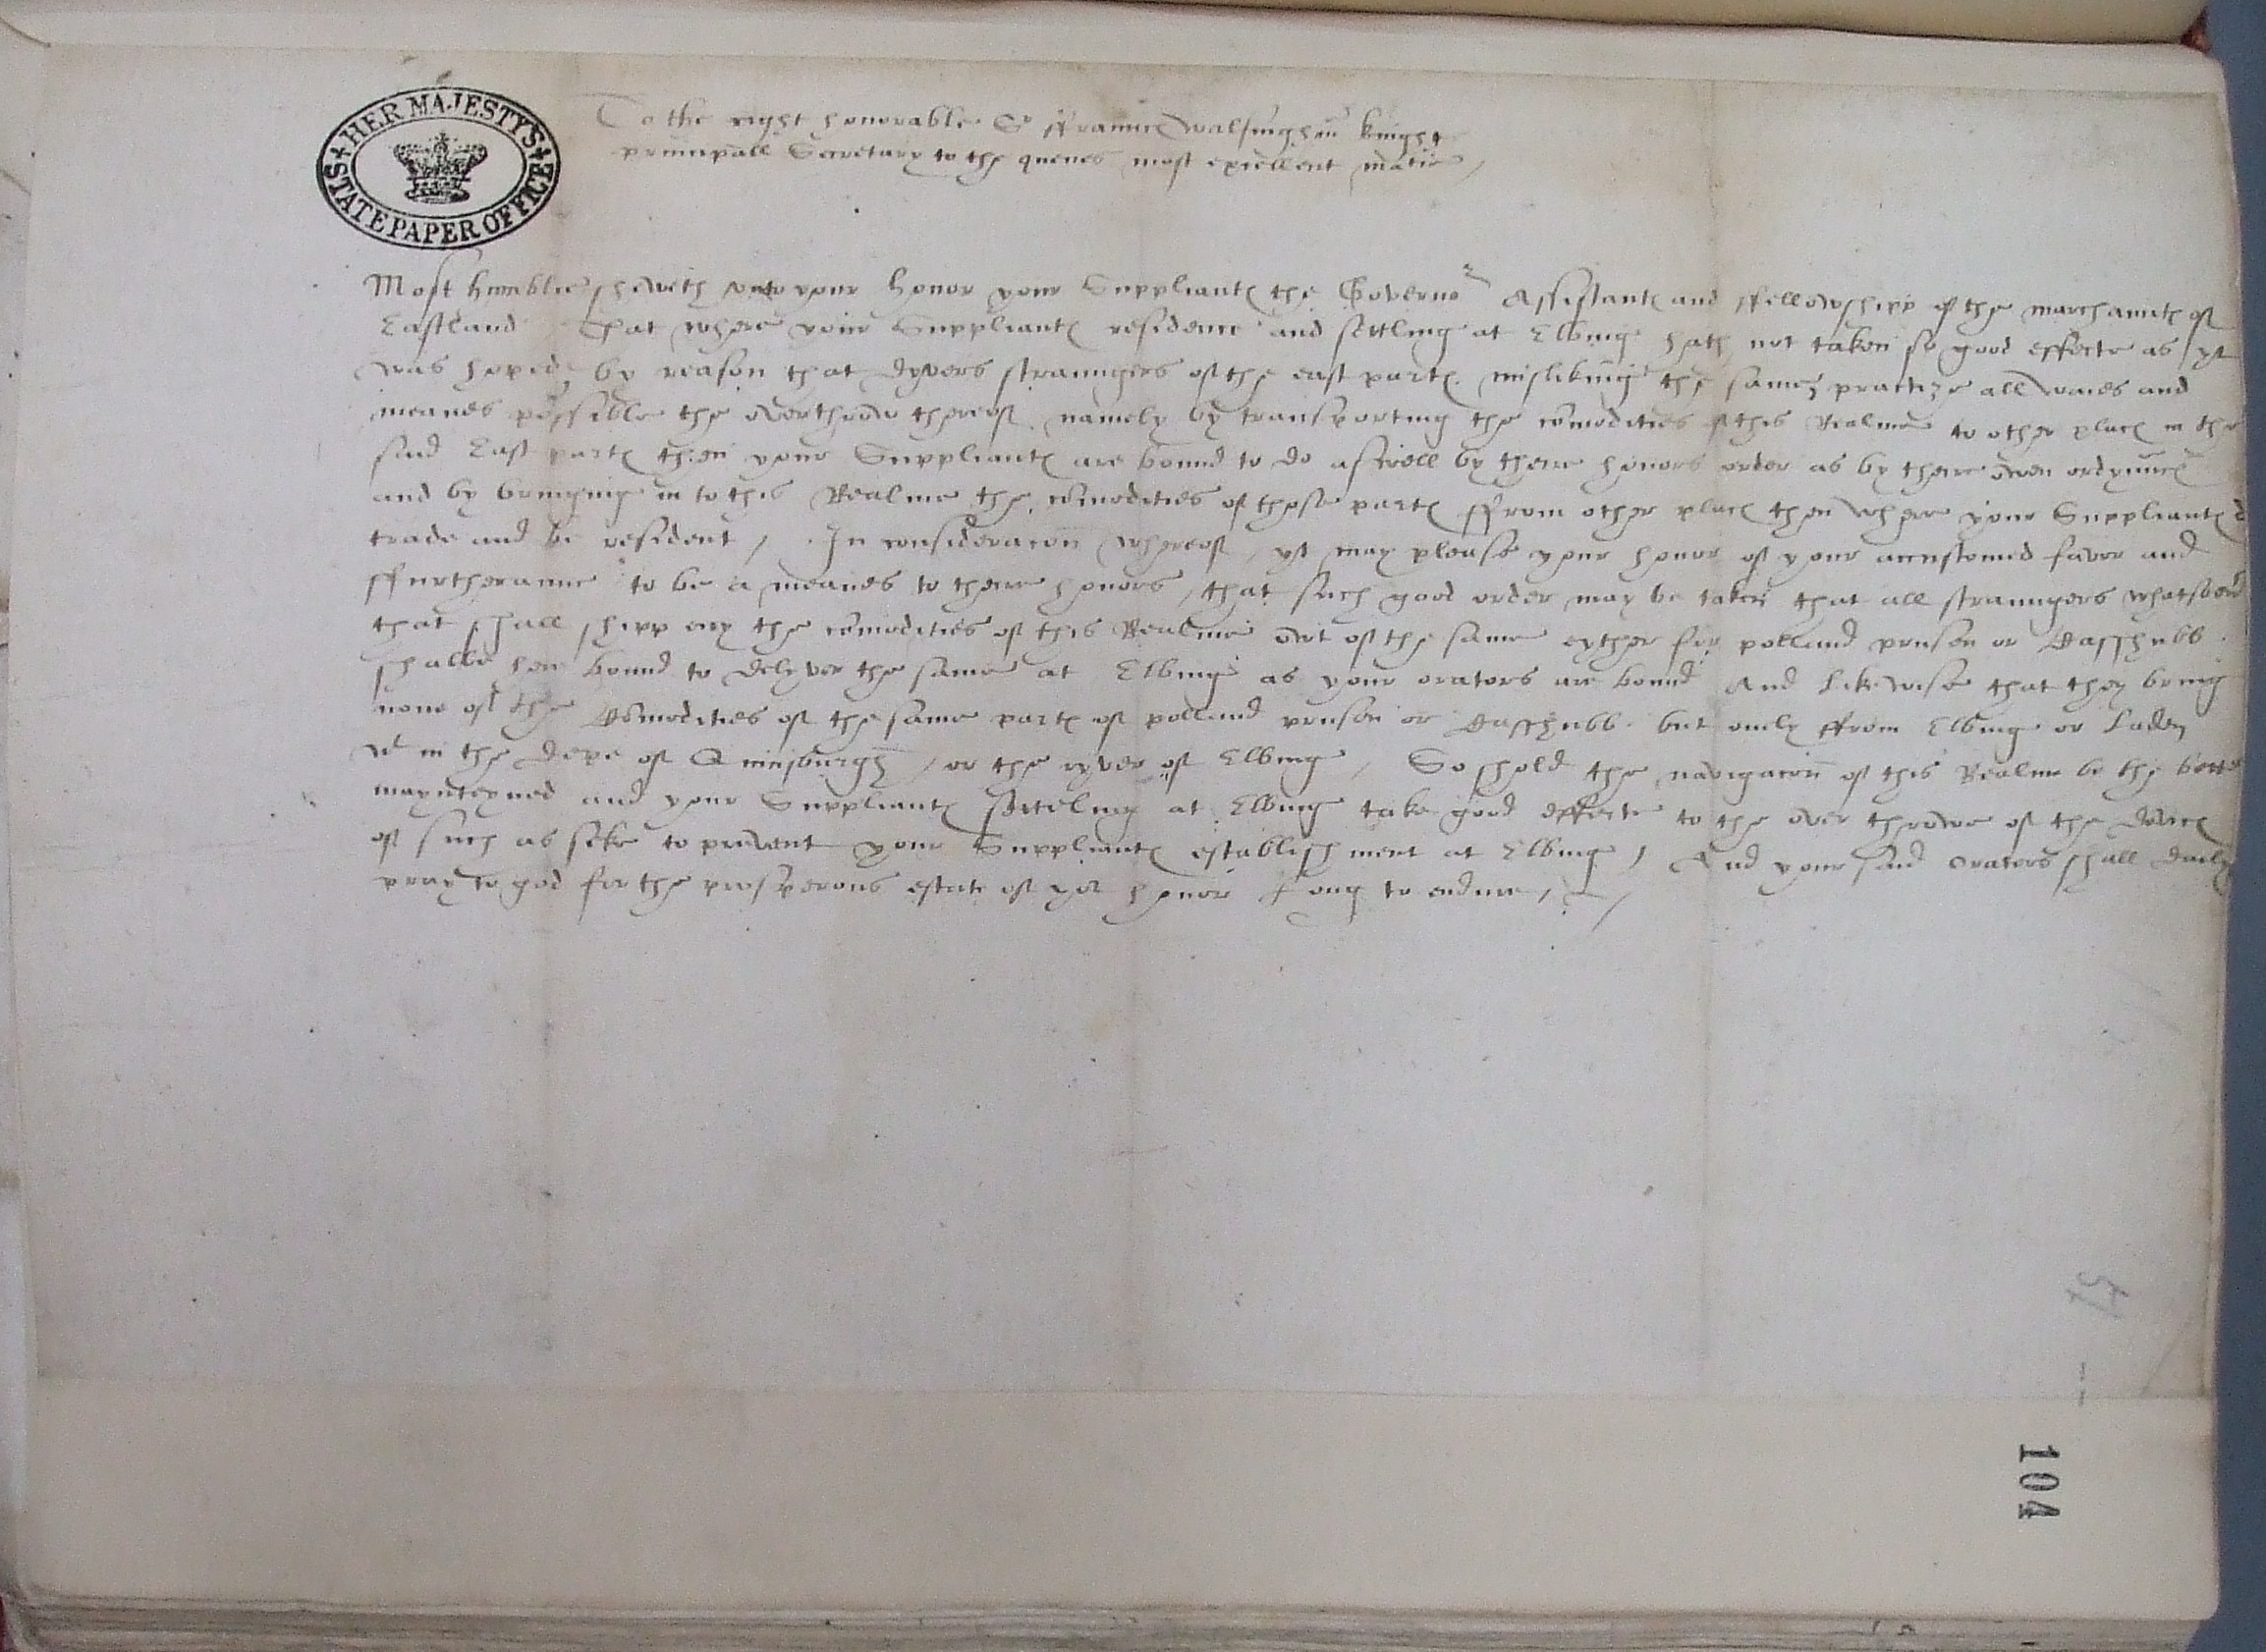 HER MAJESTY'S
STATE PAPER OFFICE
To the right honorable Sr ffraunces Walsingham knight
principall Secretary to the quenes most excellent matie /
Most humblie sheweth unto your honor your Suppliantes the Governor Assistantes and ffellowshipp of the marchauntes of
Eastland That where your Suppliantes residence and settling at Elbing hath not taken so good effecte as yt
was hoped, by reason that dyvers straungers of the east partes misliking the same, practize all waies and
meanes possible the overthrow thereof namely by transporting the comodities of this Realme to other places in the
said East partes then your Suppliantes are bound to do aswell by theire honors order as by theire owen ordynunces
and by bringing in to this Realme the comodities of those partes ffrom other places then where your Suppliantes d
trade and be resident / In consideracon whereof, yt may please your honor of your accustomed favor and
ffurtheraunce to be a meanes to theire honors, that such good order may be taken that all straungers whatsoever
that shall shipp any the comodities of this Realme owt of the same eyther for polland prusen or Casshubb.
shalbe hen bound to delyver the same at Elbing as your orators are bound And likewise that they bring
none of the Comodities of the same partes of polland prusen or Casshubb. but onely ffrom Elbing or laden
wt in the depe of Quinsburgh / or the ryver of Elbing / So shold the navigacon of this Realme be the better
maynteyned and your Suppliantes setteling at Elbing take good effecte to the over throwe of the devices
of such as seke to prevent your Suppliantes establishment at Elbing / And your said orators shall daily
pray to god for the prosperous estate of yor honor Long to endure /
104